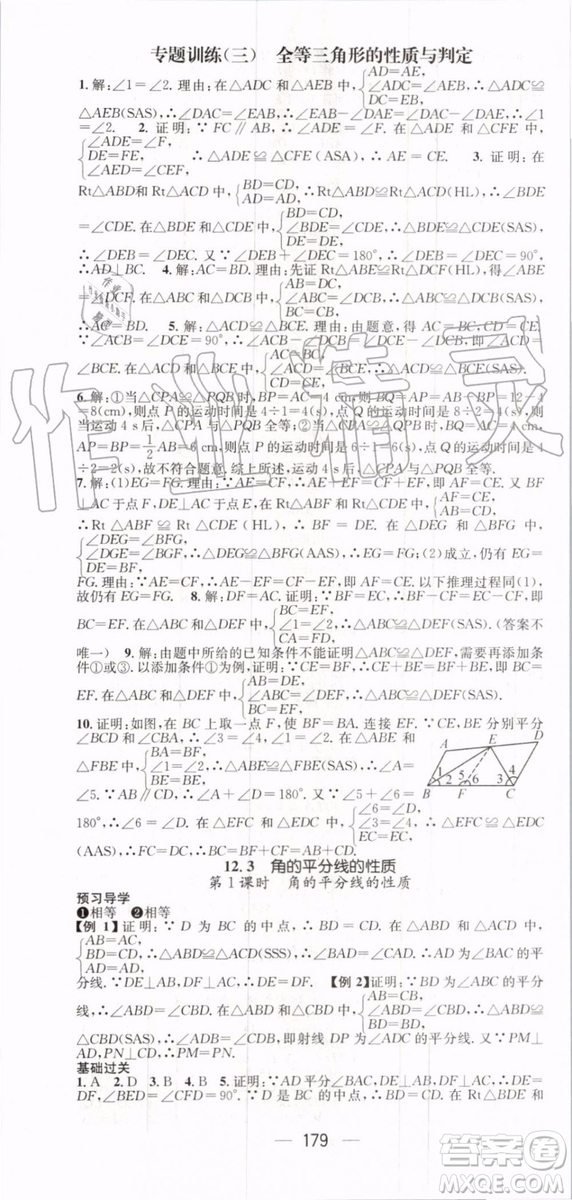 专题训练(三) 全等三角形的性质与判定
1. 解:∠1=∠2. 理由:在△ADC和△AEB中,{AD=AE, ∴△ADC≌
△AEB(SAS),∴∠DAC=∠EAB,∴∠DAC-∠DAE=∠EAB-∠DAE,∴∠1
=∠2. 2. 证明:∵FC∥AB,∴∠A=∠ACF. 在△ADE和△CFE中,
{∠ADE=∠F, DE=FE, ∠AED=∠CEF, ∴△ADE≌△CFE(ASA),∴AE=CE. 3. 证明:在
Rt△ABD和Rt△ACD中,{BD=CD, AD=AD, ∴Rt△ABD≌Rt△ACD(HL),∴∠BDE
=∠CDE. 在△BDE和△CDE中,{BD=CD, ∠BDE=∠CDE, DE=DE, ∴△BDE≌△CDE(SAS),
∴∠DEB=∠DEC. 又∵∠DEB+∠DEC=180°,∴∠DEB=∠DEC=90°,
∴AD⊥BC. 4. 解:AC=BD. 理由:先证Rt△ABE≌Rt△DCF(HL),得∠ABE
=∠DCF. 在△ABC和△DCB中,
∴AC=BD. 5. 解:△ACD≌△BCE. 理由:由题意,得AC=BC,CD=CE,
6. 解:①当△CPA≌△PQB时,BP=AC=4 cm,则BQ=AP=AB-BP=12-4
=8(cm),则点P的运动时间是4÷1=4(s),点Q的运动时间是8÷2=4(s),则
当运动4 s后,△CPA与△PQB全等;②当△CPA≌△QPB时,BQ=AC=4 cm,
AP=BP=1/2AB=6 cm,则点P的运动时间是6÷1=6(s),点Q的运动时间是4
÷2=2(s),故不符合题意. 综上所述,当运动4 s后,△CPA与△PQB全等.
7. 解:(1)EG=FG. 证明:∵AE=CF,∴AF=CE. 又∵BF⊥AC于点F,DE
⊥AC于点E,∴在Rt△ABF和Rt△CDE中,{AB=CD, AF=CE,
∴Rt△ABF≌Rt△CDE(HL),∴BF=DE. 在△DEG和△BFG中,
{∠DEG=∠BFG, ∠DGE=∠BGF, DE=BF, ∴△DEG≌△BFG(AAS),∴EG=FG;(2)成立,仍有EG=
FG. 理由:∵AE=CF,∴AE-EF=CF-EF,即AF=CE. 以下推理过程同(1),
故仍有EG=FG. 8. 解:DF=AC. 证明:∵BF=EC,∴BF+FC=EC+CF,∴
BC=EF. 在△ABC和△DEF中,{BC=EF, ∠1=∠2, CA=FD, ∴△ABC≌△DEF(SAS). (答案不
唯一) 9. 解:由题中所给的已知条件不能证明△ABC≌△DEF,需要再添加条
件①或③. 以添加条件①为例,证明:∵CE=BF,∴CE+BE=BF+BE,即BC=
EF. 在△ABC和△DEF中,{AB=DE, AC=DF, BC=EF, ∴△ABC≌△DEF(SSS).
10. 证明:如图,在BC上取一点F,使BF=BA. 连接EF. ∵CE,BE分别平分
∠BCD和∠CBA,∴∠3=∠4,∠1=∠2. 在△ABE和
△FBE中,{AB=FB, ∠1=∠2, BE=BE, ∴△ABE≌△FBE(SAS),∴∠A=
∠5. ∵AB∥CD,∴∠A+∠D=180°. 又∵∠5+∠6=
180°,∴∠6=∠D. 在△EFC和△EDC中,{∠6=∠D, ∠3=∠4, EC=EC, ∴△EFC≌△EDC
(AAS),∴FC=CD,∴BC=BF+CF=AB+CD.
A E D
1 2 5 6 3 4
B F C
12.3 角的平分线的性质
第1课时 角的平分线的性质
预习导学
❶相等 ❷相等
【例1】证明:∵D为BC的中点,∴BD=CD. 在△ABD和△ACD中,
{AB=AC, BD=CD, AD=AD, ∴△ABD≌△ACD(SSS),∴∠BAD=∠CAD,∴AD为∠BAC的平
分线. ∵DE⊥AB,DF⊥AC,∴DE=DF. 【例2】证明:∵BD为∠ABC的平分
线,∴∠ABD=∠CBD. 在△ABD和△CBD中,{AB=CB, ∠ABD=∠CBD, BD=BD, ∴△ABD≌
△CBD(SAS),∴∠ADB=∠CDB,即射线DP为∠ADC的平分线. 又∵PM⊥
AD,PN⊥CD,∴PM=PN.
基础过关
1. A 2. D 3. B 4. B 5. 证明:∵AD平分∠BAC,DE⊥AB,DF⊥AC,∴DE=
DF,∠BED=∠CFD=90°. 在Rt△BDE和Rt△CDF中,{BD=CD, DE=DF, ∴Rt△BDE
179
作业精灵
答案圈